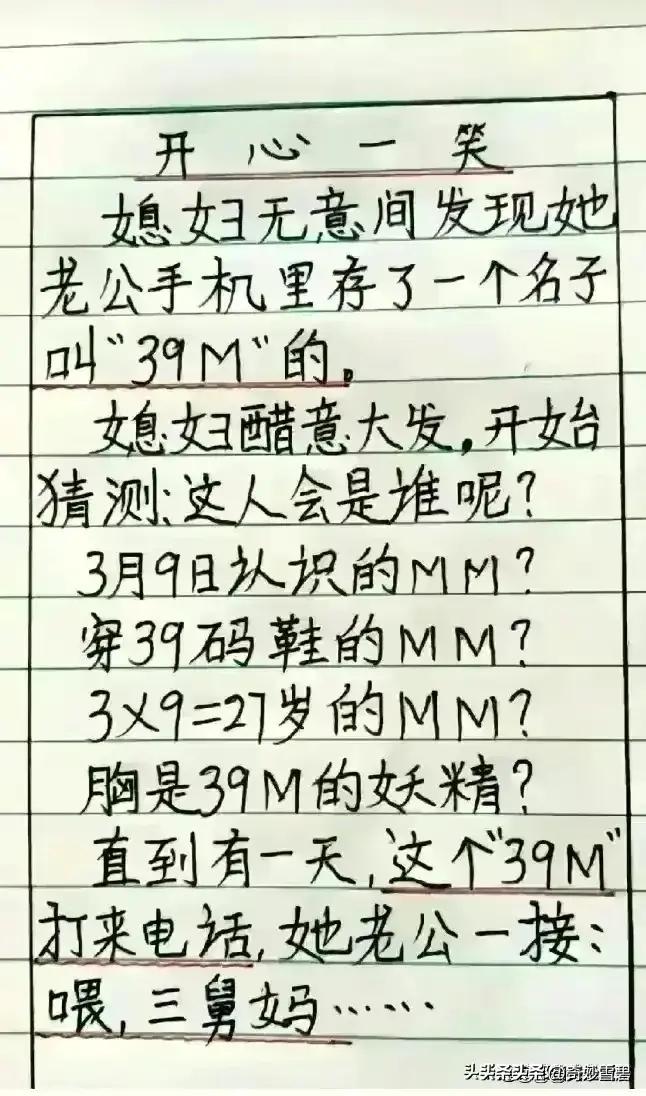 开心一笑
媳妇无意间发现她
老公手机里存了一个名子
叫"39M"的。
媳妇醋意大发,开始
猜测:这人会是谁呢?
3月9日认识的MM?
穿39码鞋的MM?
3×9=27岁的MM?
胸是39M的妖精?
直到有一天,这个"39M"
打来电话,她老公一接:
喂,三舅妈……